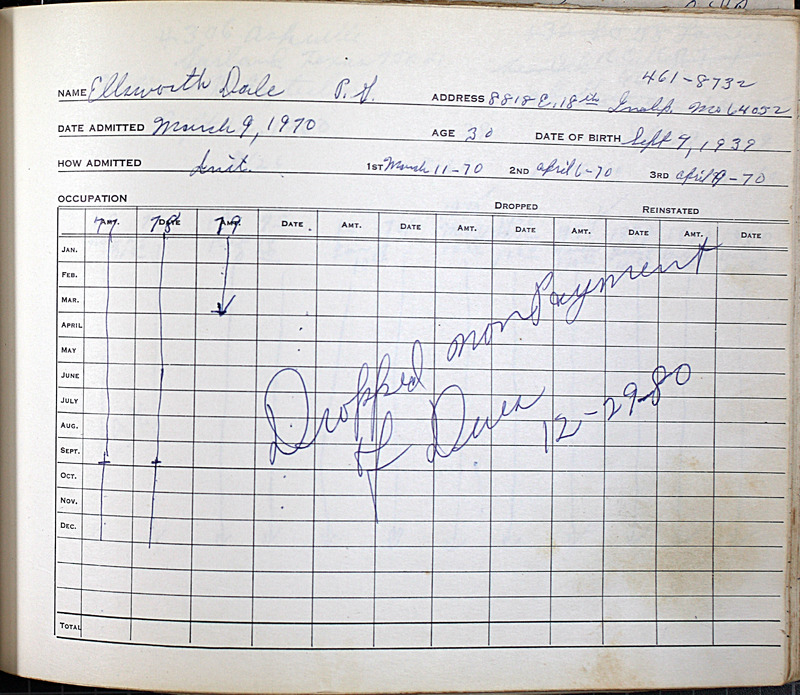 461-8732
NAME Ellsworth Dale P. G. ADDRESS 8818 E. 18th Indep. Mo 64052
DATE ADMITTED March 9, 1970 AGE 30 DATE OF BIRTH Sept 9, 1939
HOW ADMITTED Init. 1ST March 11-70 2ND April 6-70 3RD April 9-70
OCCUPATION DROPPED REINSTATED
77 78 79
AMT. DATE AMT. DATE AMT. DATE AMT. DATE AMT. DATE AMT. DATE
JAN.
FEB.
MAR.
APRIL
MAY
JUNE
JULY
AUG.
SEPT.
OCT.
NOV.
DEC.
TOTAL
Dropped non Payment
of Dues 12-29-80